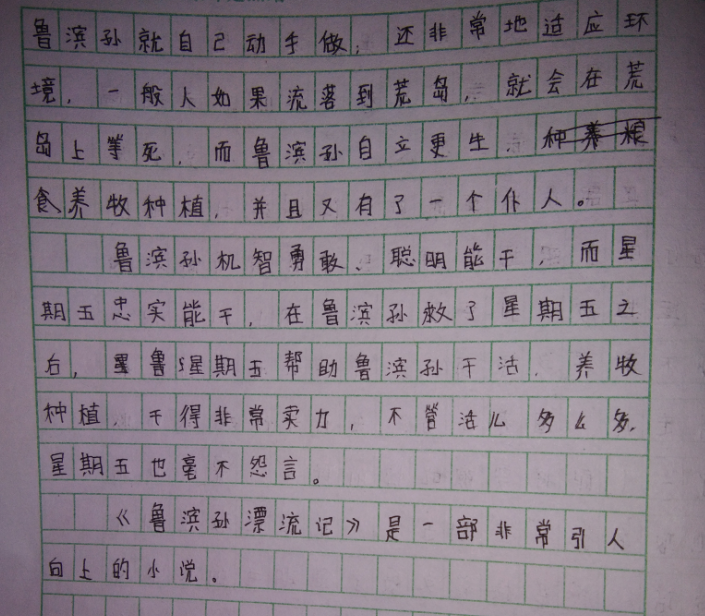 鲁滨孙就自己动手做，还非常地适应环
境，一般人如果流落到荒岛，就会在荒
岛上等死，而鲁滨孙自立更生，种养粮
食养牧种植，并且又有了一个仆人。
鲁滨孙机智勇敢、聪明能干，而星
期五忠实能干，在鲁滨孙救了星期五之
后，星期五帮助鲁滨孙干活，养牧
种植，干得非常卖力，不管活儿多么多，
星期五也毫不怨言。
《鲁滨孙漂流记》是一部非常引人
向上的小说。